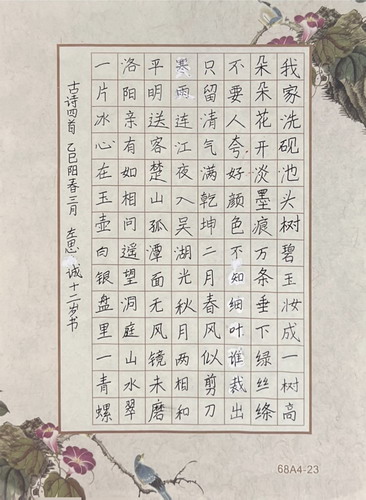 我家洗砚池头树碧玉妆成一树高
朵朵花开淡墨痕万条垂下绿丝绦
不要人夸好颜色不知细叶谁裁出
只留清气满乾坤二月春风似剪刀
寒雨连江夜入吴湖光秋月两相和
平明送客楚山孤潭面无风镜未磨
洛阳亲有如相问遥望洞庭山水翠
一片冰心在玉壶白银盘里一青螺
古诗四首 乙巳阳春三月 左思诚十二岁书
68A4-23